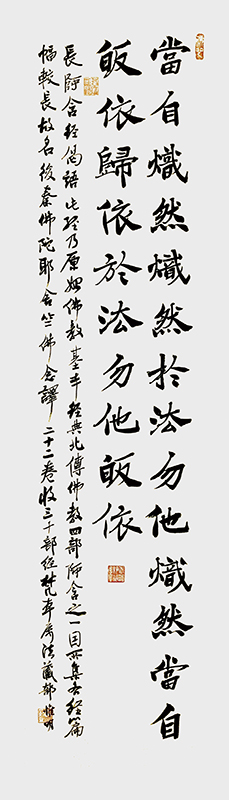 當自熾然熾然於法勿他熾然當自
皈依歸依於法勿他皈依
長阿含經偈語此經乃原始佛教基本經典北傳佛教四部阿含之一因所集各經篇
幅較長故名後秦佛陀耶舍竺佛念譯二十二卷收三十部經梵本屬法藏部惟明